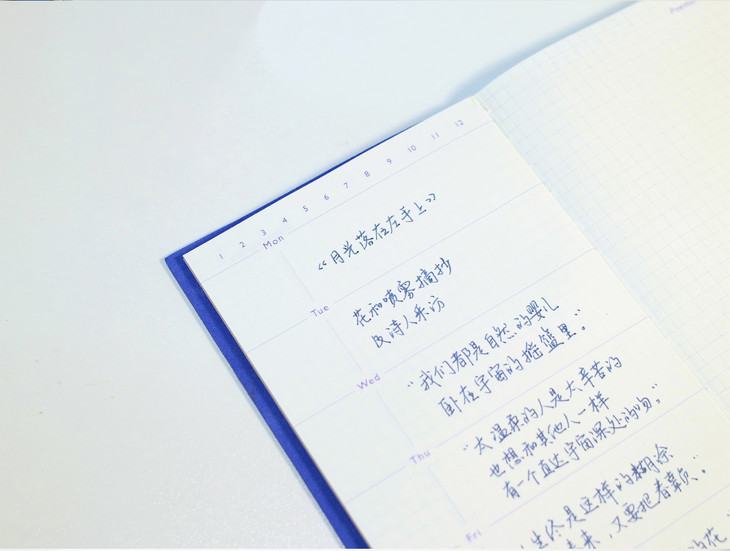 1 2 3 4 5 6 7 8 9 10 11 12
Mon
《月光落在左手上》
Tue
花和喷雾摘抄
及诗人采访
Wed
“我们都是自然的婴儿
卧在宇宙的摇篮里。”
Thu
“太温柔的人是太辛苦的
也想和其他人一样
有一个直达宇宙深处的吻。”
Fri
是这样的糊涂
来，又要把春辜负。”
的花